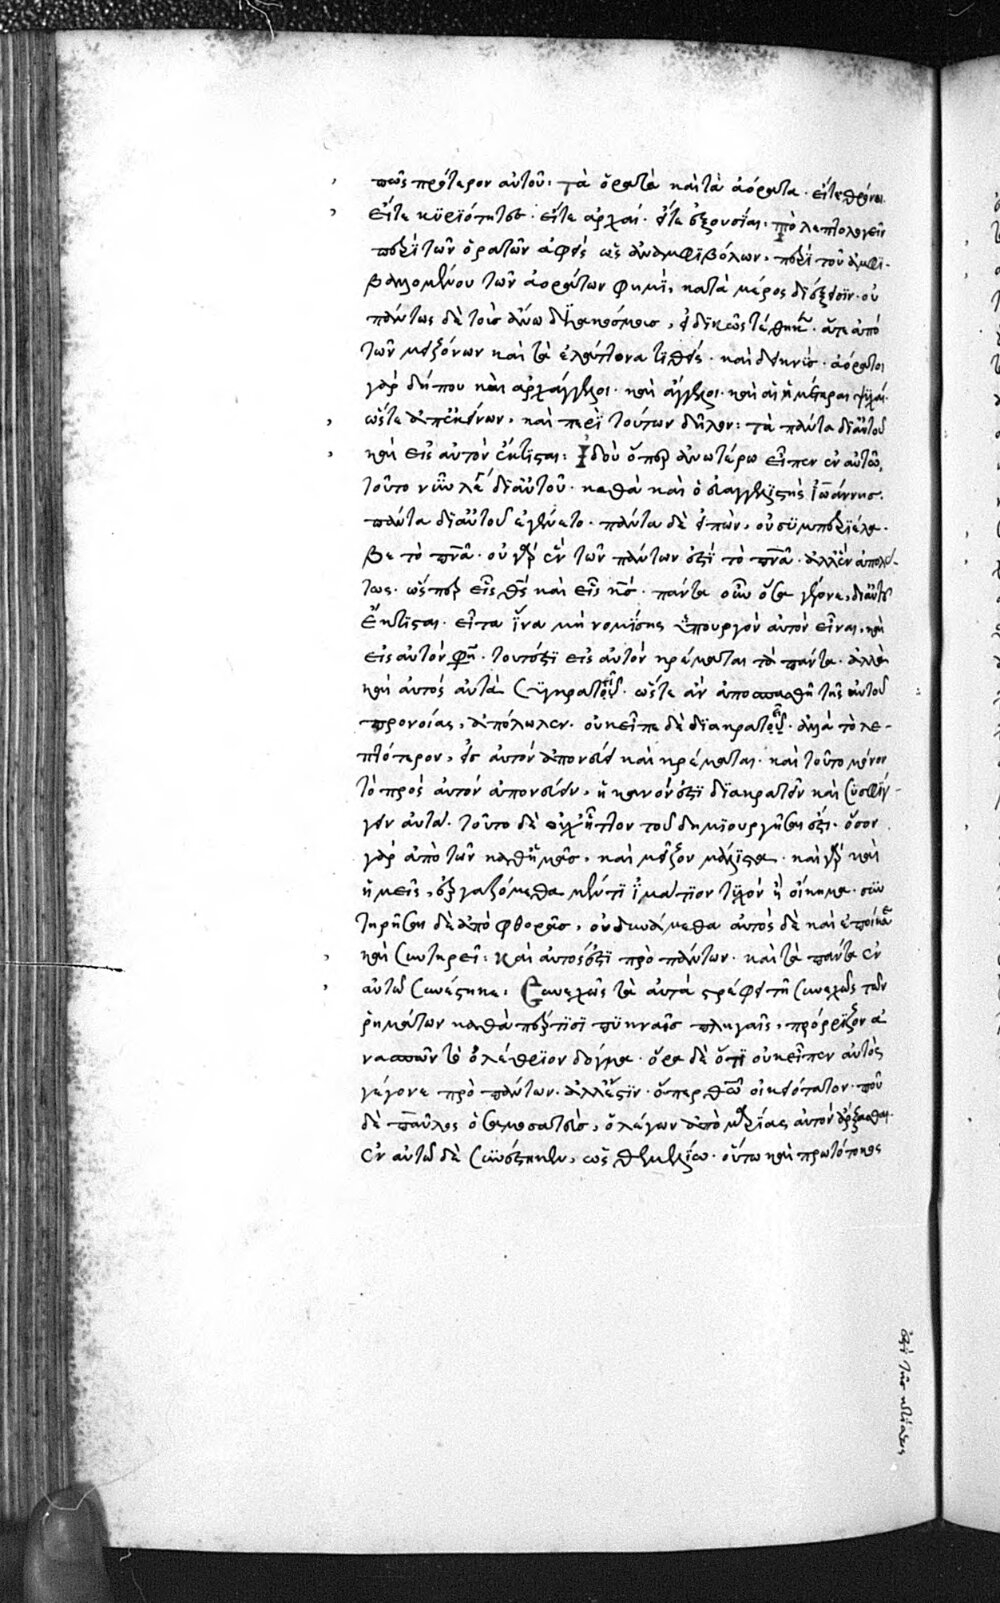 πῶς πρότερον αὐτοῦ· τὰ ὁρατὰ καὶ τὰ ἀόρατα· εἴτε θρόνοι
εἴτε κυριότητες· εἴτε ἀρχαί· εἴτε ἐξουσίαι· τὸ λεπτολογεῖν
περὶ τῶν ὁρατῶν ἀφεὶς ὡς ἀναμφιβόλων, περὶ τοῦ ἀμφι-
βαλλομένου τῶν ἀοράτων φημὶ, κατὰ μέρος διέξεισιν· οὐ
πάντως δὲ τοῖς ἄνω διακόσμοις, εἰδικῶς τέθηκεν· ἅτε ἀπὸ
τῶν μειζόνων καὶ τὰ ἐλάττονα τιθείς· καὶ δεικνύς· ἀόρατοι
γὰρ δήπου καὶ ἀρχάγγελοι· καὶ ἄγγελοι· καὶ αἱ ἡμέτεραι ψυχαί·
ὥστε ἀπ' ἐκείνων, καὶ περὶ τούτων δῆλον: τὰ πάντα δι' αὐτοῦ
καὶ εἰς αὐτὸν ἔκτισται: Ἰδοὺ ὅπερ ἀνωτέρω εἶπεν ἐν αὐτῶ,
τοῦτο νῦν λέγει δι' αὐτοῦ· καθὰ καὶ ὁ εὐαγγελιστὴς Ἰωάννης·
πάντα δι' αὐτοῦ ἐγένετο· πάντα δὲ εἰπὼν, οὐ συμπεριέλα-
βε τὸ πνα· οὐ γὰρ ἓν τῶν πάντων ἐστὶ τὸ πνα· ἀλλ' ἓν ἀπολύ-
τως· ὥσπερ εἷς θς καὶ εἷς κς· πάντα οὖν ὅσα γέγονε, δι' αὐτοῦ
ἔκτισται· εἶτα ἵνα μὴ νομίσης ὑπουργὸν αὐτὸν εἶναι, καὶ
εἰς αὐτὸν φησὶ· τουτέστι εἰς αὐτὸν κρέμαται τὰ πάντα· ἀλλὰ
καὶ αὐτὸς αὐτὰ συγκρατεῖ· ὥστε ἂν ἀποσπασθῆ τῆς αὐτοῦ
προνοίας, ἀπόλωλεν· οὐκ εἶπε δὲ διακρατεῖ· ἀλλὰ τὸ λε-
πτότερον, εἰς αὐτὸν ἀπονεύει καὶ κρέμαται· καὶ τοῦτο μόνον
τὸ πρὸς αὐτὸν ἀπονεύειν, ἱκανόν ἐστι διακρατεῖν καὶ συσφίγ-
γειν αὐτά· τοῦτο δὲ οὐχ ἧττον τοῦ δημιουργῆσαι ἐστι· ὅσον
γὰρ ἀπὸ τῶν καθ' ἡμᾶς, καὶ μεῖζον μάλιστα· καὶ γὰρ καὶ
ἡμεῖς, ἐργαζόμεθα μέν τι ἱμάτιον τυχὸν ἢ οἴκημα· συν
τηρῆσαι δὲ ἀπὸ φθορᾶς, οὐ δυνάμεθα αὐτὸς δὲ καὶ ἐποίησε
καὶ συντηρεῖ: Καὶ αὐτός ἐστι πρὸ πάντων· καὶ τὰ πάντα ἐν
αὐτῶ συνέστηκε· Συνεχῶς τὰ αὐτὰ στρέφει τῆ συνεχῶς τῶν
ῥημάτων καθάπερ τισὶ πυκναῖς πληγαῖς, πρόρριζον ἀ
νασπῶν τὸ ὀλέθριον δόγμα· ὅρα δὲ ὅτι οὐκ εἶπεν αὐτὸς
γέγονε πρὸ πάντων· ἀλλ' ἔστιν· ὅπερ θεῶ οἰκειότατον· ποῦ
δὲ παῦλος ὁ σαμοσατεὺς, ὁ λέγων ἀπὸ μαρίας αὐτὸν ἄρξασθαι·
ἐν αὐτῶ δὲ συνέστηκεν, ὡς θεμελίω· οὕτω καὶ πρωτότοκος
ἐστὶ τῆς κτίσεως